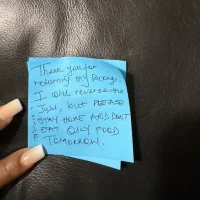 Thank you for
returning my package,
I will reverse the
Juju, but PLEASE
STAY HOME AND DON'T
EAT ONLY FOOD
TOMORROW.